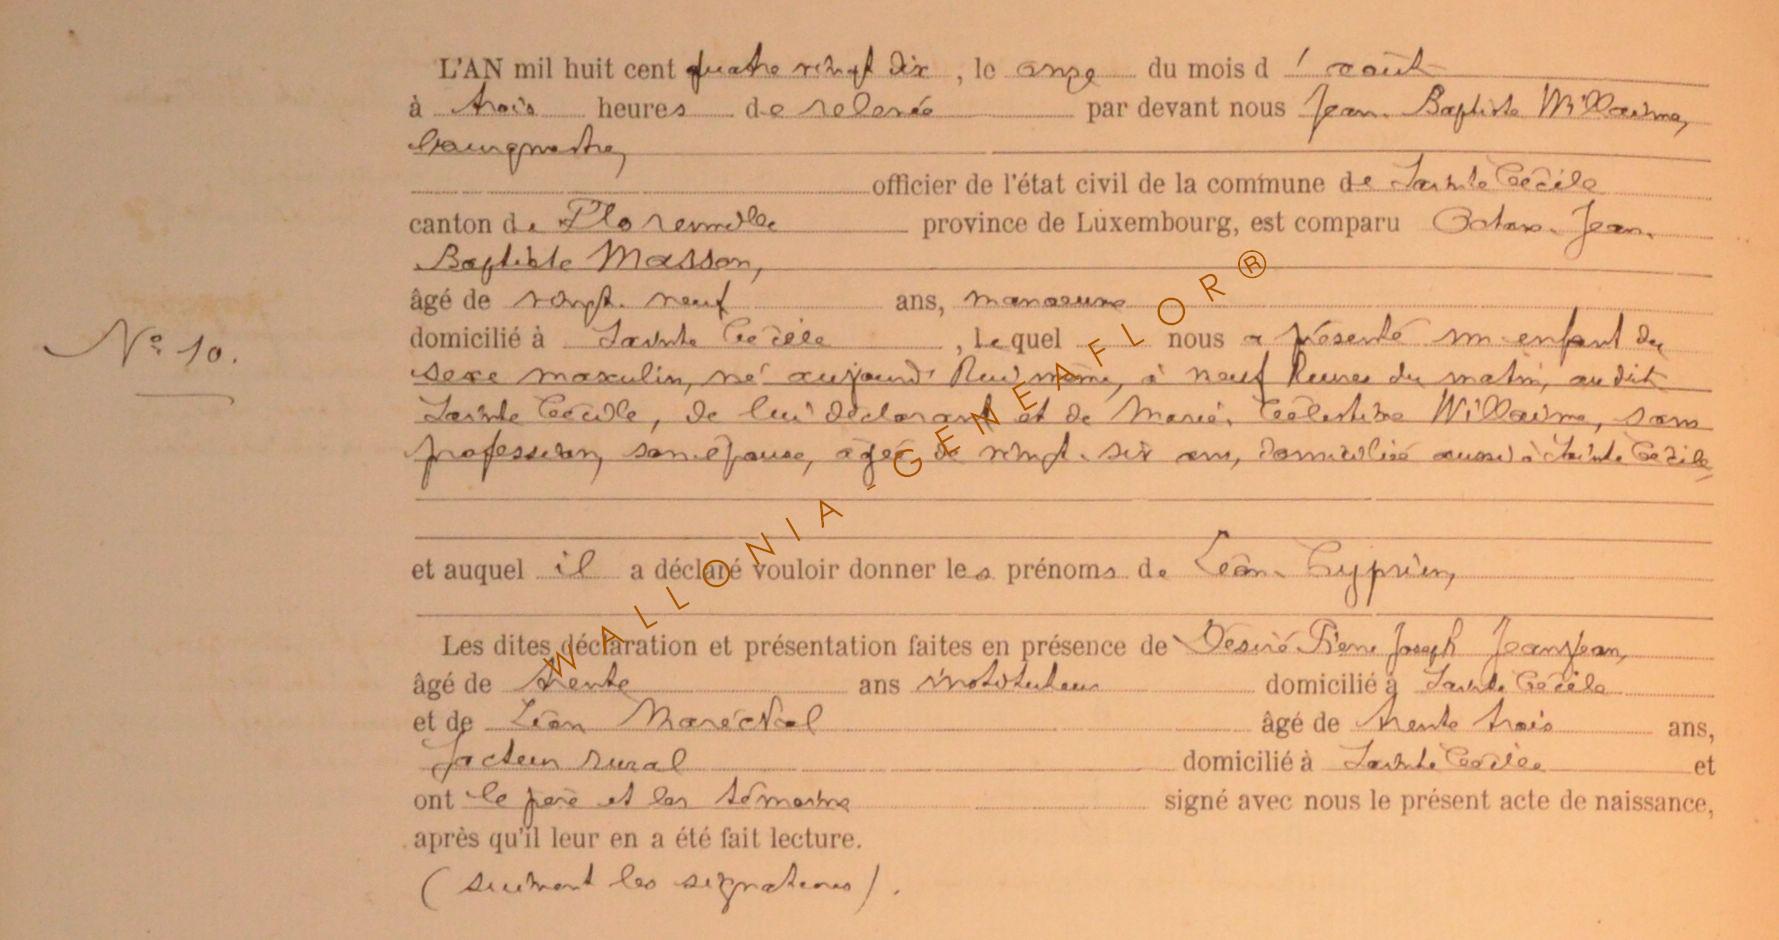 L'AN mil huit cent quatre vingt dix, le onze du mois d'août
à trois heures de relevée par devant nous Jean Baptiste Willaime,
bourgmestre,
officier de l'état civil de la commune de Sainte Cécile
canton de Florenville province de Luxembourg, est comparu Octave Jean
Baptiste Masson,
âgé de vingt neuf ans, manoeuvre
domicilié à Sainte Cécile, lequel nous a présenté un enfant du
N° 10.
sexe masculin, né aujourd'hui même, à neuf heures du matin, au dit
Sainte Cécile, de lui déclarant et de Marie Célestine Willaime, sans
profession, son épouse, agée de vingt six ans, domiciliée aussi à Sainte Cécile
et auquel il a déclaré vouloir donner les prénoms de Léon Cyprien,
Les dites déclaration et présentation faites en présence de Désiré Pierre Joseph Jeanjean,
âgé de trente ans instituteur domicilié à Sainte Cécile
et de Léon Maréchal âgé de trente trois ans,
facteur rural domicilié à Sainte Cécile et
ont le père et les témoins signé avec nous le présent acte de naissance,
après qu'il leur en a été fait lecture.
(suivent les signatures).
WALLONIA-GENEAFLOR®